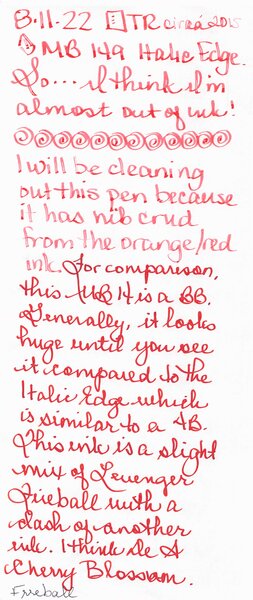 8.11.22 TR circa 2015
MB 149 Italic Edge.
So... I think I'm
almost out of ink!
I will be cleaning
out this pen because
it has nib crud
from the orange/red
ink. For comparison,
this MB 14 is a BB.
Generally, it looks
huge until you see
it compared to the
Italic Edge which
is similar to a 4B.
This ink is a slight
mix of Levenger
Fireball with a
dash of another
ink. I think De A
Cherry Blossom.
Fireball